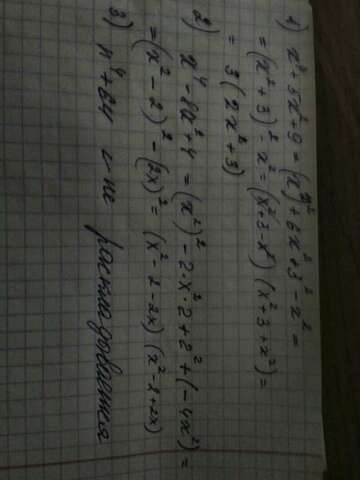 1) x⁴ + 5x² + 9 = (x²)² + 6x² + 3² - x² =
= (x² + 3)² - x² = (x² + 3 - x²) (x² + 3 + x²) =
= 3 (2x² + 3)
2) x⁴ - 8x² + 4 = (x²)² - 2·x²·2 + 2² + (-4x²) =
= (x² - 2)² - (2x)² = (x² - 2 - 2x) (x² - 2 + 2x)
3) n⁴ + 64 - не раскладывается